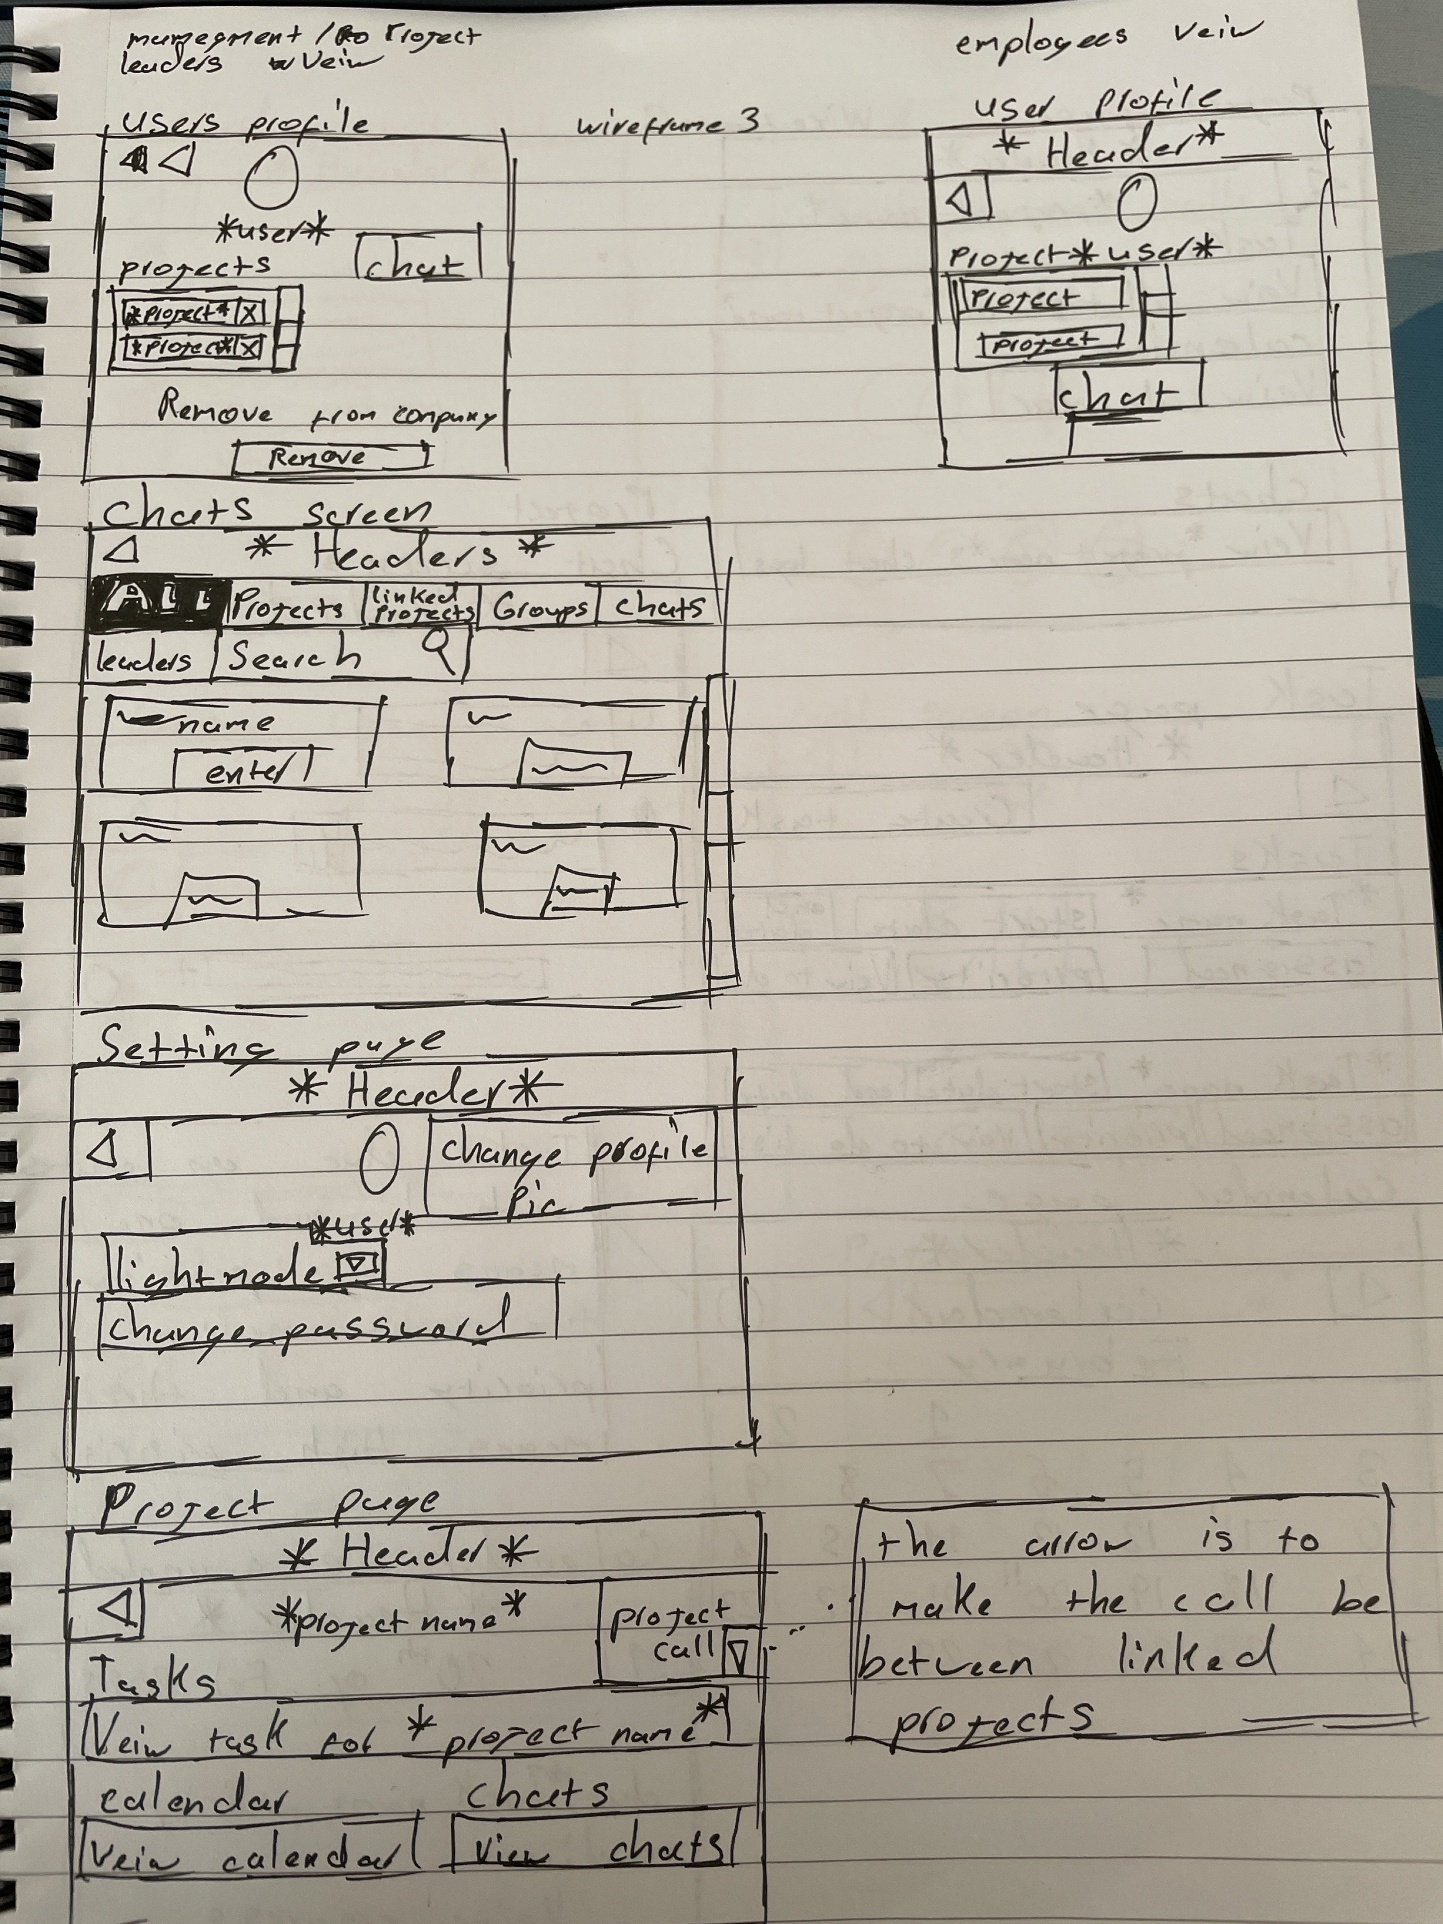 management / Project
leaders Veiw
employees veiw
users profile
wireframe 3
user profile
*user*
projects
chat
*project* X
*project* X
Remove from company
Remove
* Header*
Project *user*
Project
project
chat
Chats screen
* Headers *
ALL
Projects
linked
projects
Groups
chats
leaders
Search
name
enter
Setting page
* Header*
change profile
pic
*user*
lightmode
change password
Project page
* Header*
*project name*
project
call
Tasks
Vein task for * project name*
calendar
chats
Vein calendar
View chats
the arrow is to
make the call be
between linked
projects